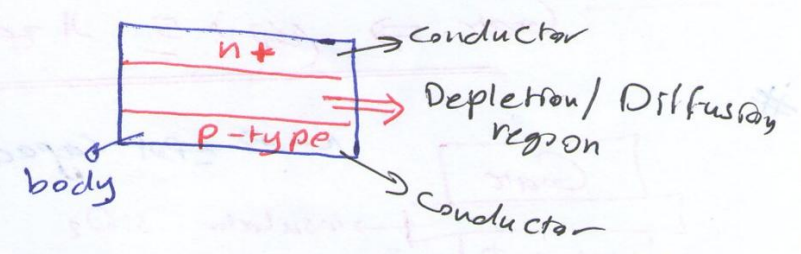 n+
conductor
Depletion/ Diffusion
region
p-type
body
conductor